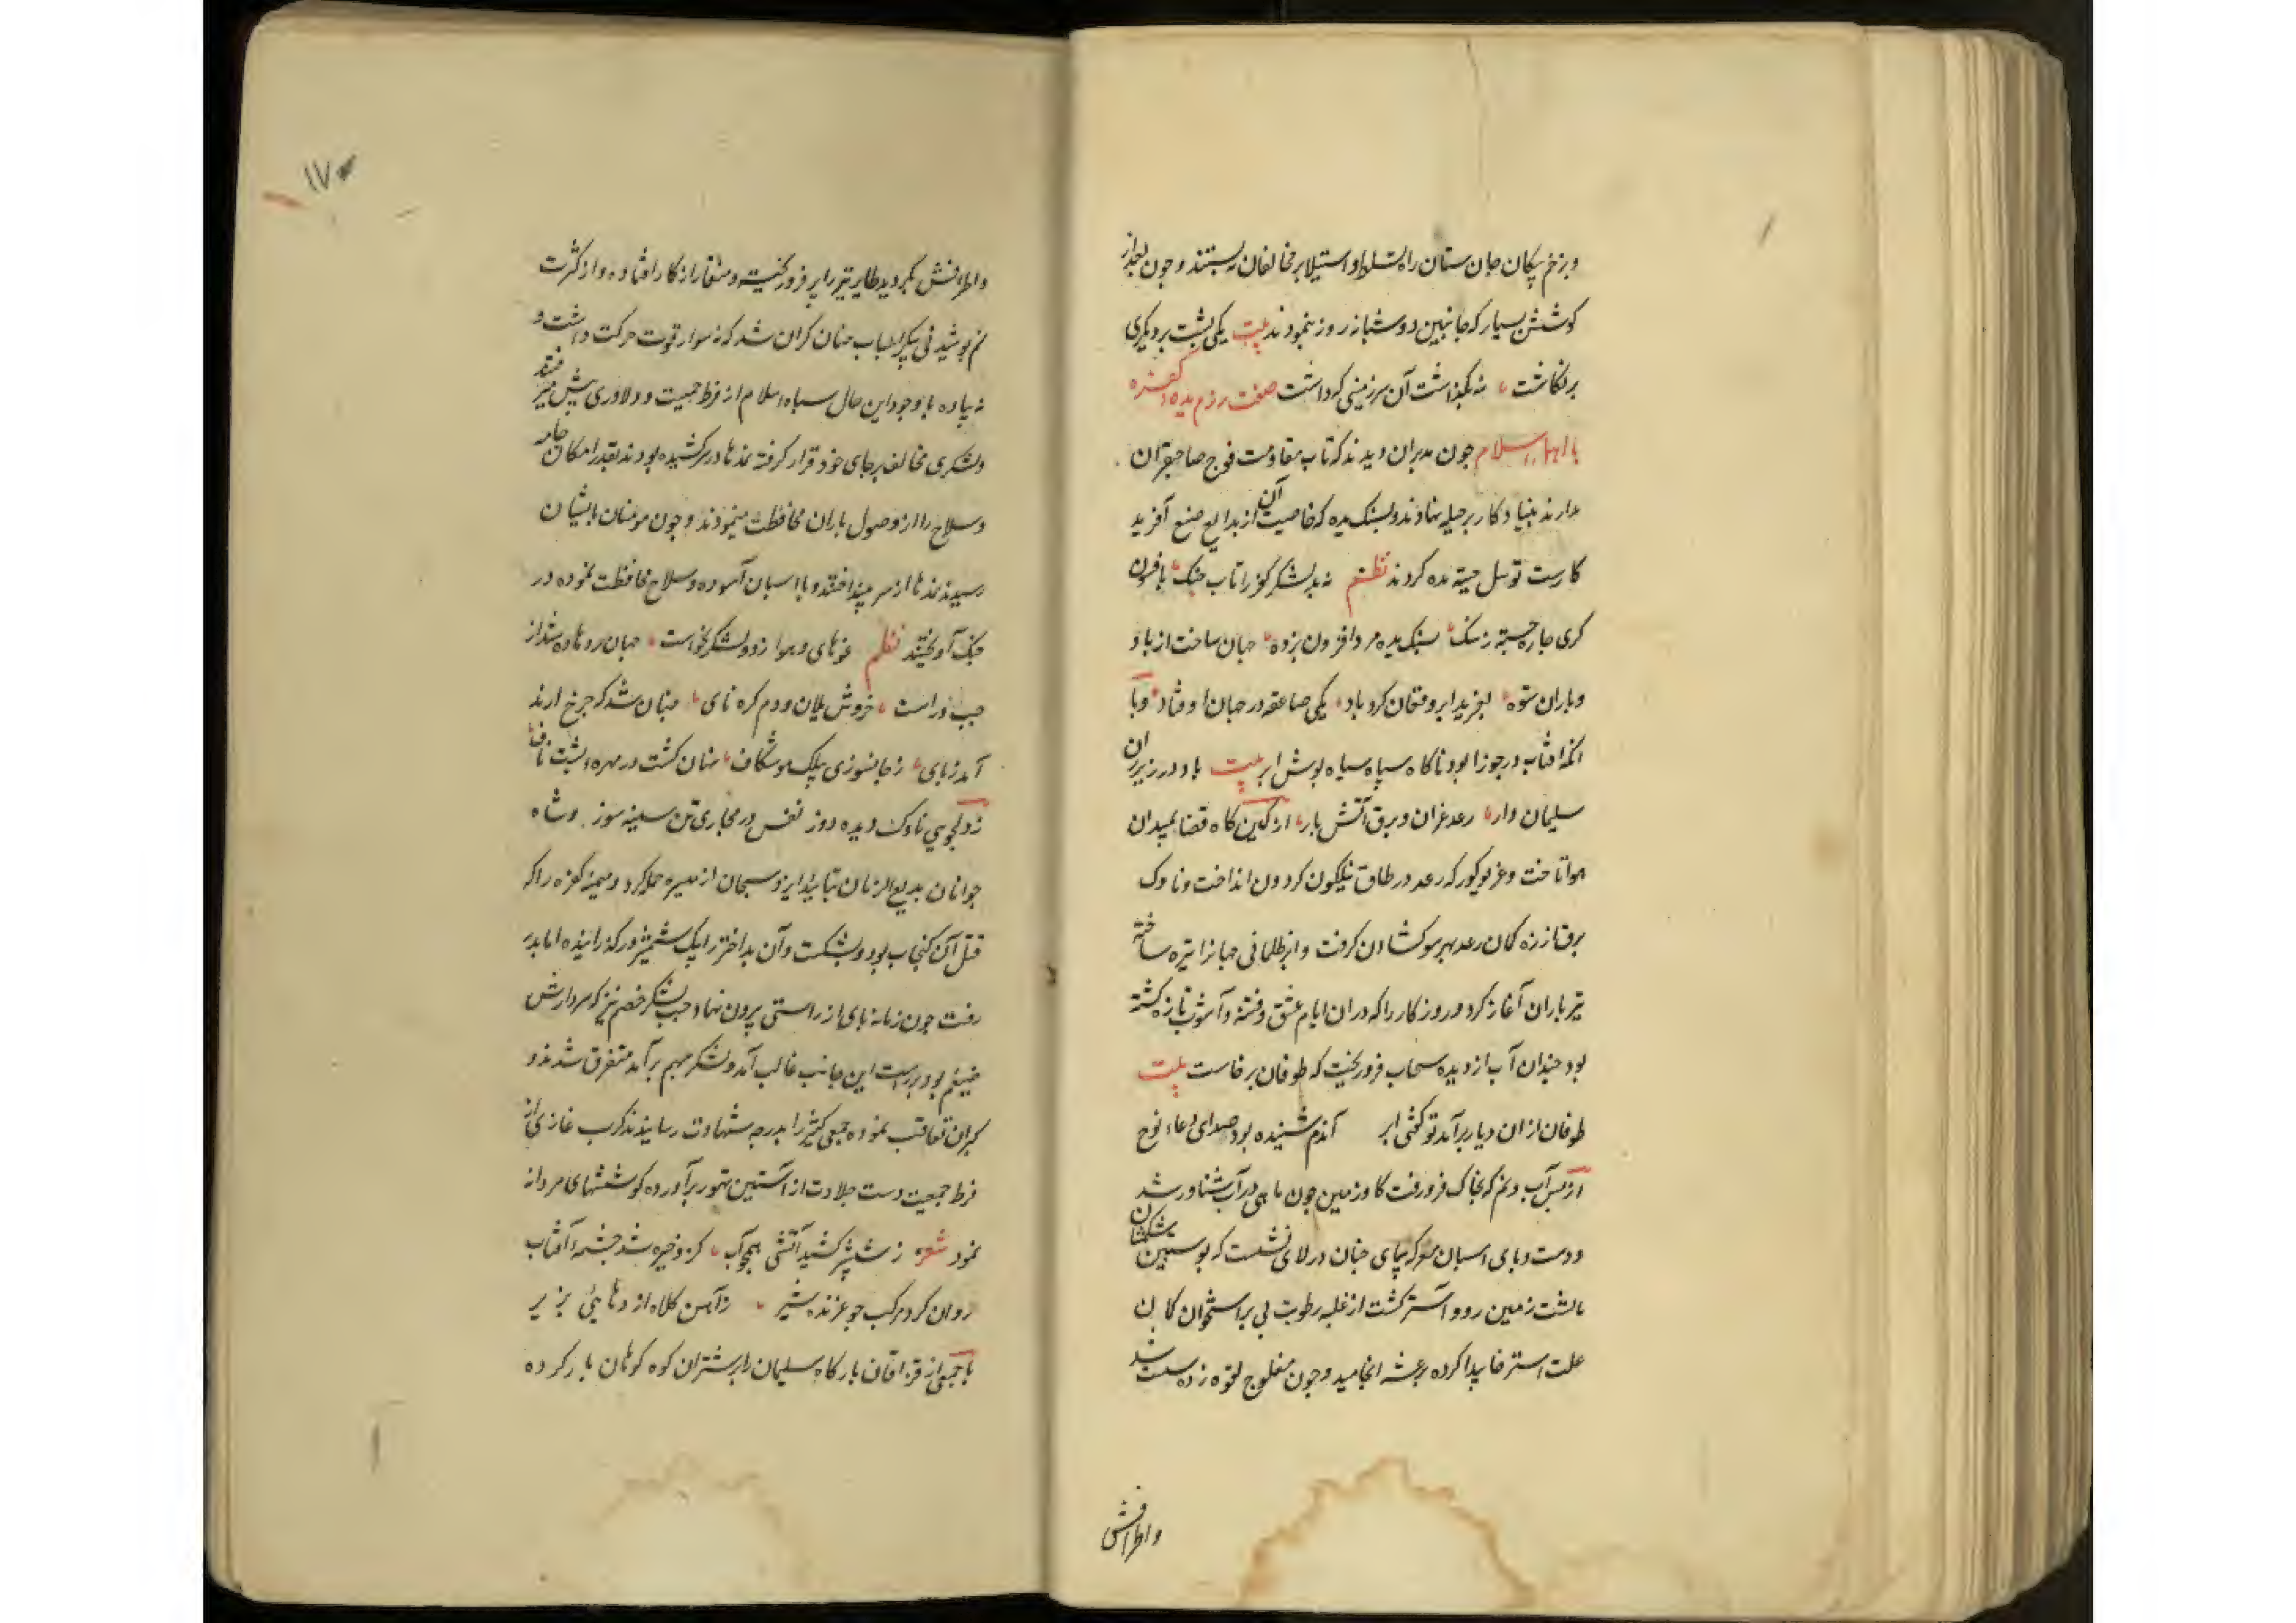 و بزخم پیکان جان ستان راه تسلط و استیلا بر مخالفان نه بستند و چون بعد از
کوشش بسیار که جانبین دو شبانه روز بنمودند بیت یکی پشت بر دیگری
برنکاشت نه بگذاشت آن سرزمینی که داشت صفت رزم یده کفره
با اهل اسلام چون مدبران دیدند که تاب مقاومت فوج صاحبقران
ندارند بنیاد کار بر حیله نهادند و بسنک یده که خاصیت آن از بدایع صنع آفرید
کارست توسل جسته یده کردند نظم نه بد لشکر کفر را تاب جنک بافسون
کری چاره جسته ز سنک سنک یده مرد افزون بزده جهان ساخت از باد و
و باران ستوه بغرید ابر و فغان کرد باد یکی صاعقه در جهان اوفتاد و با
انکه افتاب در جوزا بود ناکاه سپاه سیاه پوش ابر بیت باد در زیر ران
سلیمان وار رعد غران و برق آتش بار از کمین کاه قضا بمیدان
هوا تاخت و غریو کور که رعد در طاق نیلکون کردون انداخت و ناوک
برق از زه کمان رعد بهر سو کشادن کرفت و ابر ظلمانی جهانرا تیره ساخته
تیر باران آغاز کرد و روزکار را که در ان ایام عشق و فتنه و آشوب تازه کشته
بود چندان آب از دیده سحاب فرو ریخت که طوفان برخاست بیت
طوفان از ان دیار برآمد تو کفتی ابر آندم شنیده بود صدای دعاء نوح
از بس آب و نم که بخاک فرو رفت کاو زمین چون ماهی در آب شناور شد
و دست و پای اسبان معرکه پیمای چنان در لای نشست که
زمین رو و آستر کشت از غلبه رطوبت پی بر استخوان کمان
علت استرخا پیدا کرده برعشه انجامید و چون مفلوج لقوه زده سست شد
واطرافش
۱۷
واطرافش بکردید طایر تیر را پر فرو ریخت و منقار از کار افتاده و از کثرت
نم پوشیدنی پیکر اسباب چنان کران شد که نه سوار قوت حرکت داشت و
نه پیاده با وجود این حال سپاه اسلام از فرط حمیت و دلاوری پیش میرفتند
و لشکری مخالف بر جای خود قرار کرفته نمدها در سر کشیده بودند بقدر امکان جامه
و سلاح را از وصول باران محافظت مینمودند و چون مومنان بایشان
رسیدند نمدها از سر میانداختند و با اسبان آسوده و سلاح محافظت نموده در
جنک آویختند نظم غوهای و هوا ز دو لشکر بخواست جهان رو نهاده شد از
چپ و راست خروش یلان و دم کره نای چنان شد که چرخ ارند
آمد ز پای ز جانسوزی پیلک موشکاف نهان کشت در مهره پشت ناف
ز دلجویی ناوک دیده دوز نفس در مجاری تن سینه سوز و شاه
جوانان بدیع الزمان بتایید ایزد سبحان از میسره حمله کرد و میمنه کفره را که
قتل آن کنجاب بود بشکست و آن بداختر را یک شمشیر ور کذرانیده اما بدر
رفت چون زمانه پای از راستی بیرون نهاد و چپ لشکر خصم نیز که سردارش
ضیغم بود بر راست این جانب غالب آمد و لشکر بهم بر آمد متفرق شدند و
کبران تعاقب نموده جمعی کثیر را بدرجه شهادت رسانیدند کرب غازی از
فرط حمیت دست جلادت از آستین تهور برآورده کوششهای مردانه
نمود شعر ز شمشیر کشید آتشی همچو آب کزو خیره شد چشمه آفتاب
روان کرد مرکب چو غرنده شیر ز آهن کلاه اژدهایی بزیر
با جمعی از قزاقان بارکاه سلیمان را بر شتران کوه کوهان بار کرده